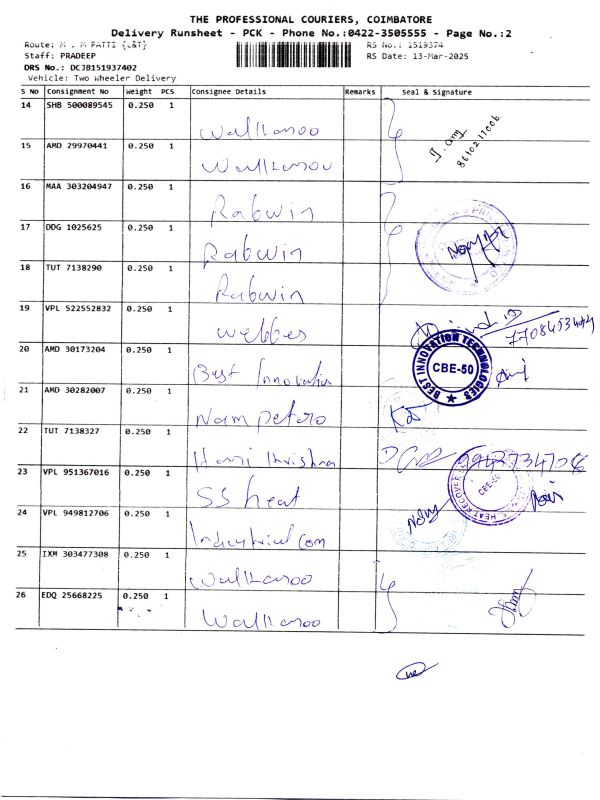 THE PROFESSIONAL COURIERS, COIMBATORE
Delivery Runsheet - PCK - Phone No.:0422-3505555 - Page No.:2
Route: M . M PATTI {L&T} RS No.: 1519374
Staff: PRADEEP RS Date: 13-Mar-2025
DRS No.: DCJB151937402
Vehicle: Two Wheeler Delivery
S No Consignment No Weight PCS Consignee Details Remarks Seal & Signature
14 SHB 500089545 0.250 1
Walkaroo
8610217006
15 AMD 29970441 0.250 1
Walkaroo
16 MAA 303204947 0.250 1
Rabwin
17 DDG 1025625 0.250 1
Rabwin
18 TUT 7138290 0.250 1
Rabwin
19 VPL 522552832 0.250 1
webbes
20 AMD 30173204 0.250 1
Best Innovation
BEST INNOVATION TECHNOLOGIES
CBE-50
21 AMD 30282007 0.250 1
Nam petro
22 TUT 7138327 0.250 1
Hari krishna
23 VPL 951367016 0.250 1
SS heat
CBE-50
24 VPL 949812706 0.250 1
Industrial Com
25 IXM 303477308 0.250 1
Walkaroo
26 EDQ 25668225 0.250 1
Walkaroo